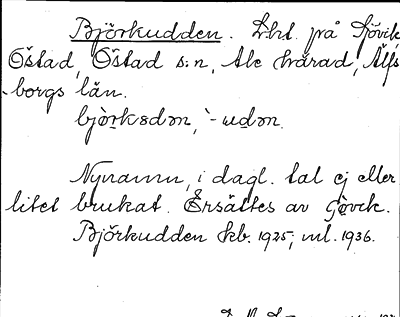 Björkudden. Lht. på Sjövik
Östad, Östad s:n, Ale härad, Älfs-
borgs län.
bjòrkɘdɘn, `-udɘn.
Nynamn, i dagl. tal ej eller
litet brukat. Ersättes av Sjövik.
Björkudden kb. 1925, ml. 1936.